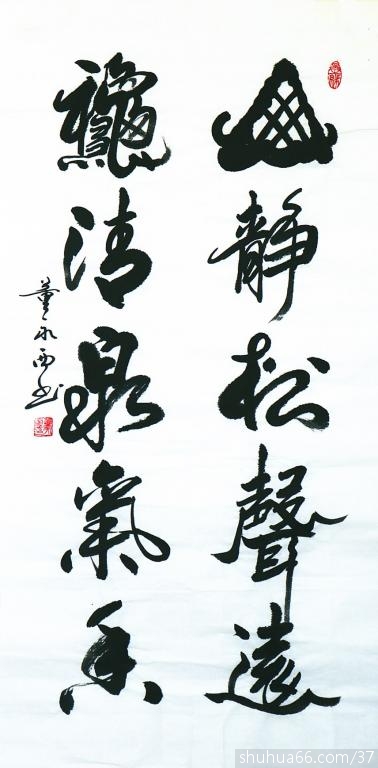 山静松聲遠
龝清泉氣香
董永西书
shuhua66.com/37